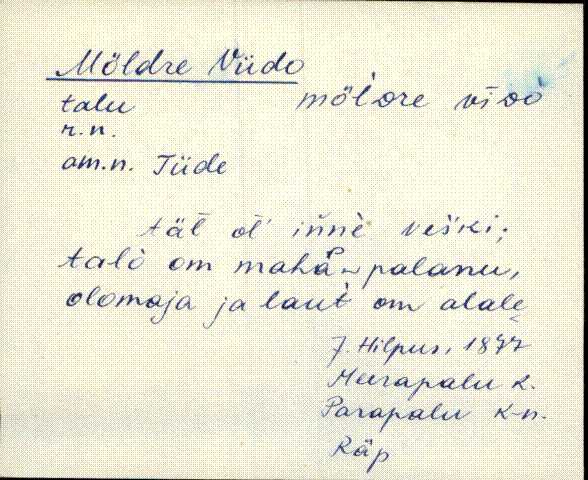 Möldre Viido
talu möl'dre vīdò
r.n.
am.n. Tiide
tāl ol' inne veski;
talò om mahà palanu,
olomaja ja laut om alale
J. Hilpus, 1877
Meerapalu k.
Parapalu k-n.
Räp